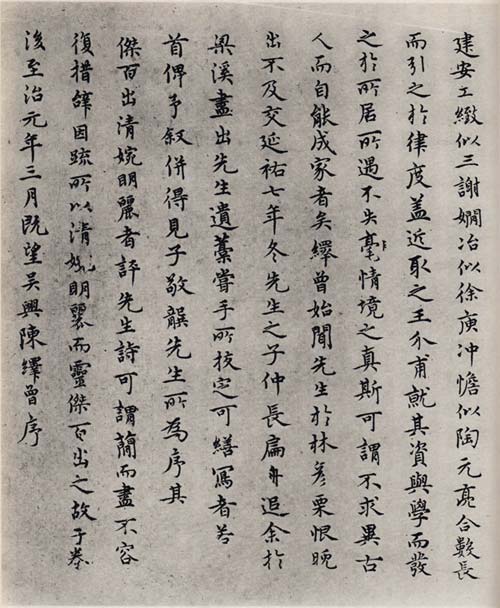 建安工緻似三謝嫺冶似徐庾沖憺似陶元亮合數長
而引之於律度盖近取之王介甫就其資與學而發
之於所居所遇不失毫情境之真斯可謂不求異古
人而自能成家者矣繹曾始聞先生於林彥栗恨晚
出不及交延祐七年冬先生之子仲長扁舟追余於
梁溪盡出先生遺藁嘗手所校定可繕寫者若
首俾予叙併得見子敬龔先生所為序其
傑百出清婉明麗者評先生詩可謂蕳而盡不容
復措辭因疏所以清婉明麗而靈傑百出之故于卷
後至治元年三月既望吳興陳繹曾序